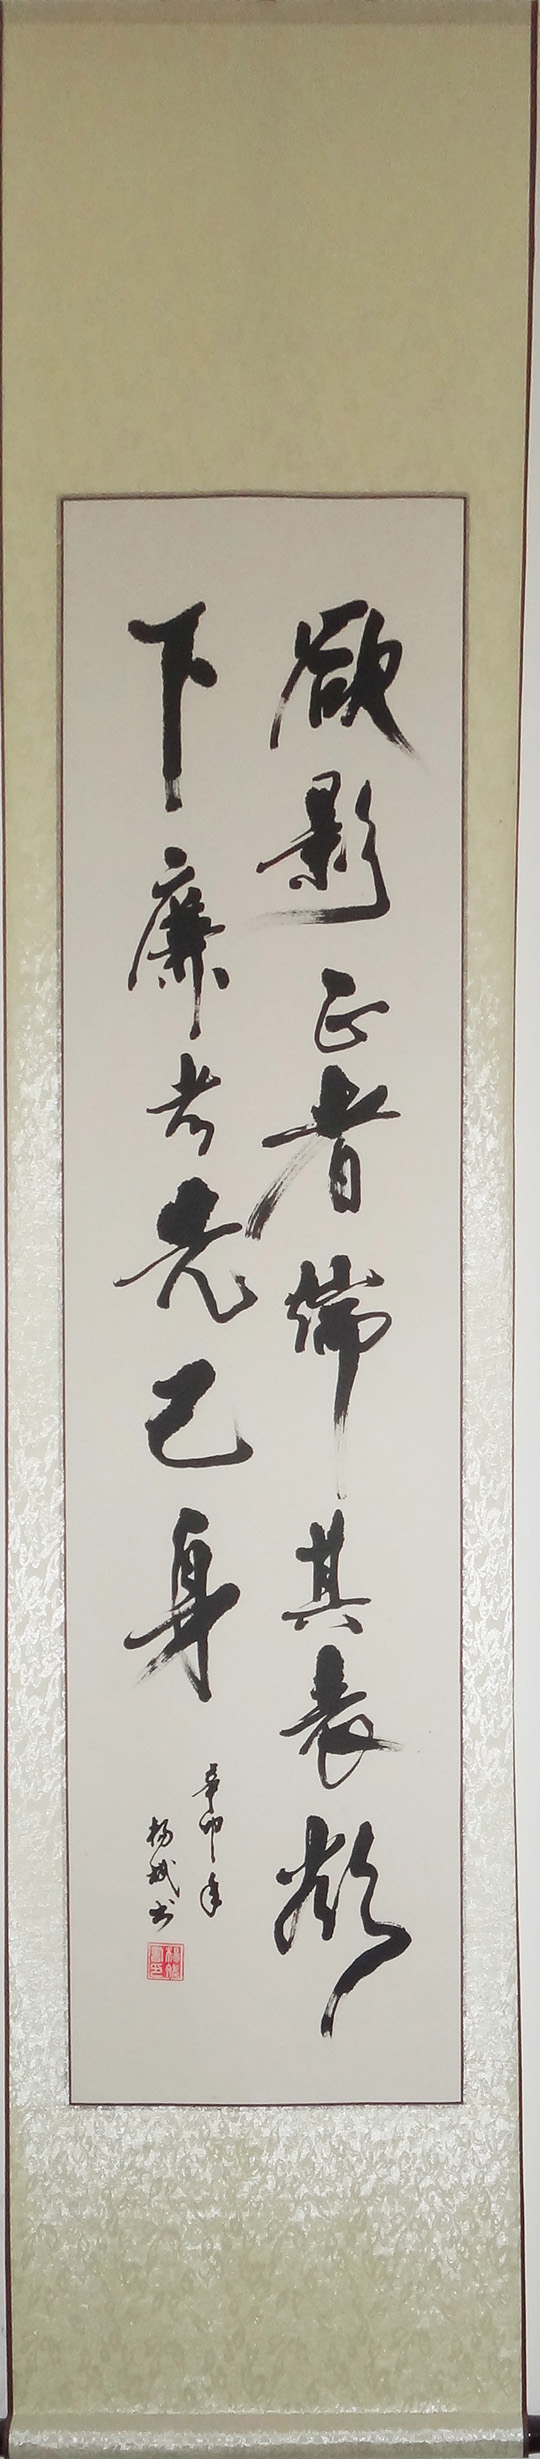 欲影正者端其表欲
下廉者先己身
辛卯年
杨斌书